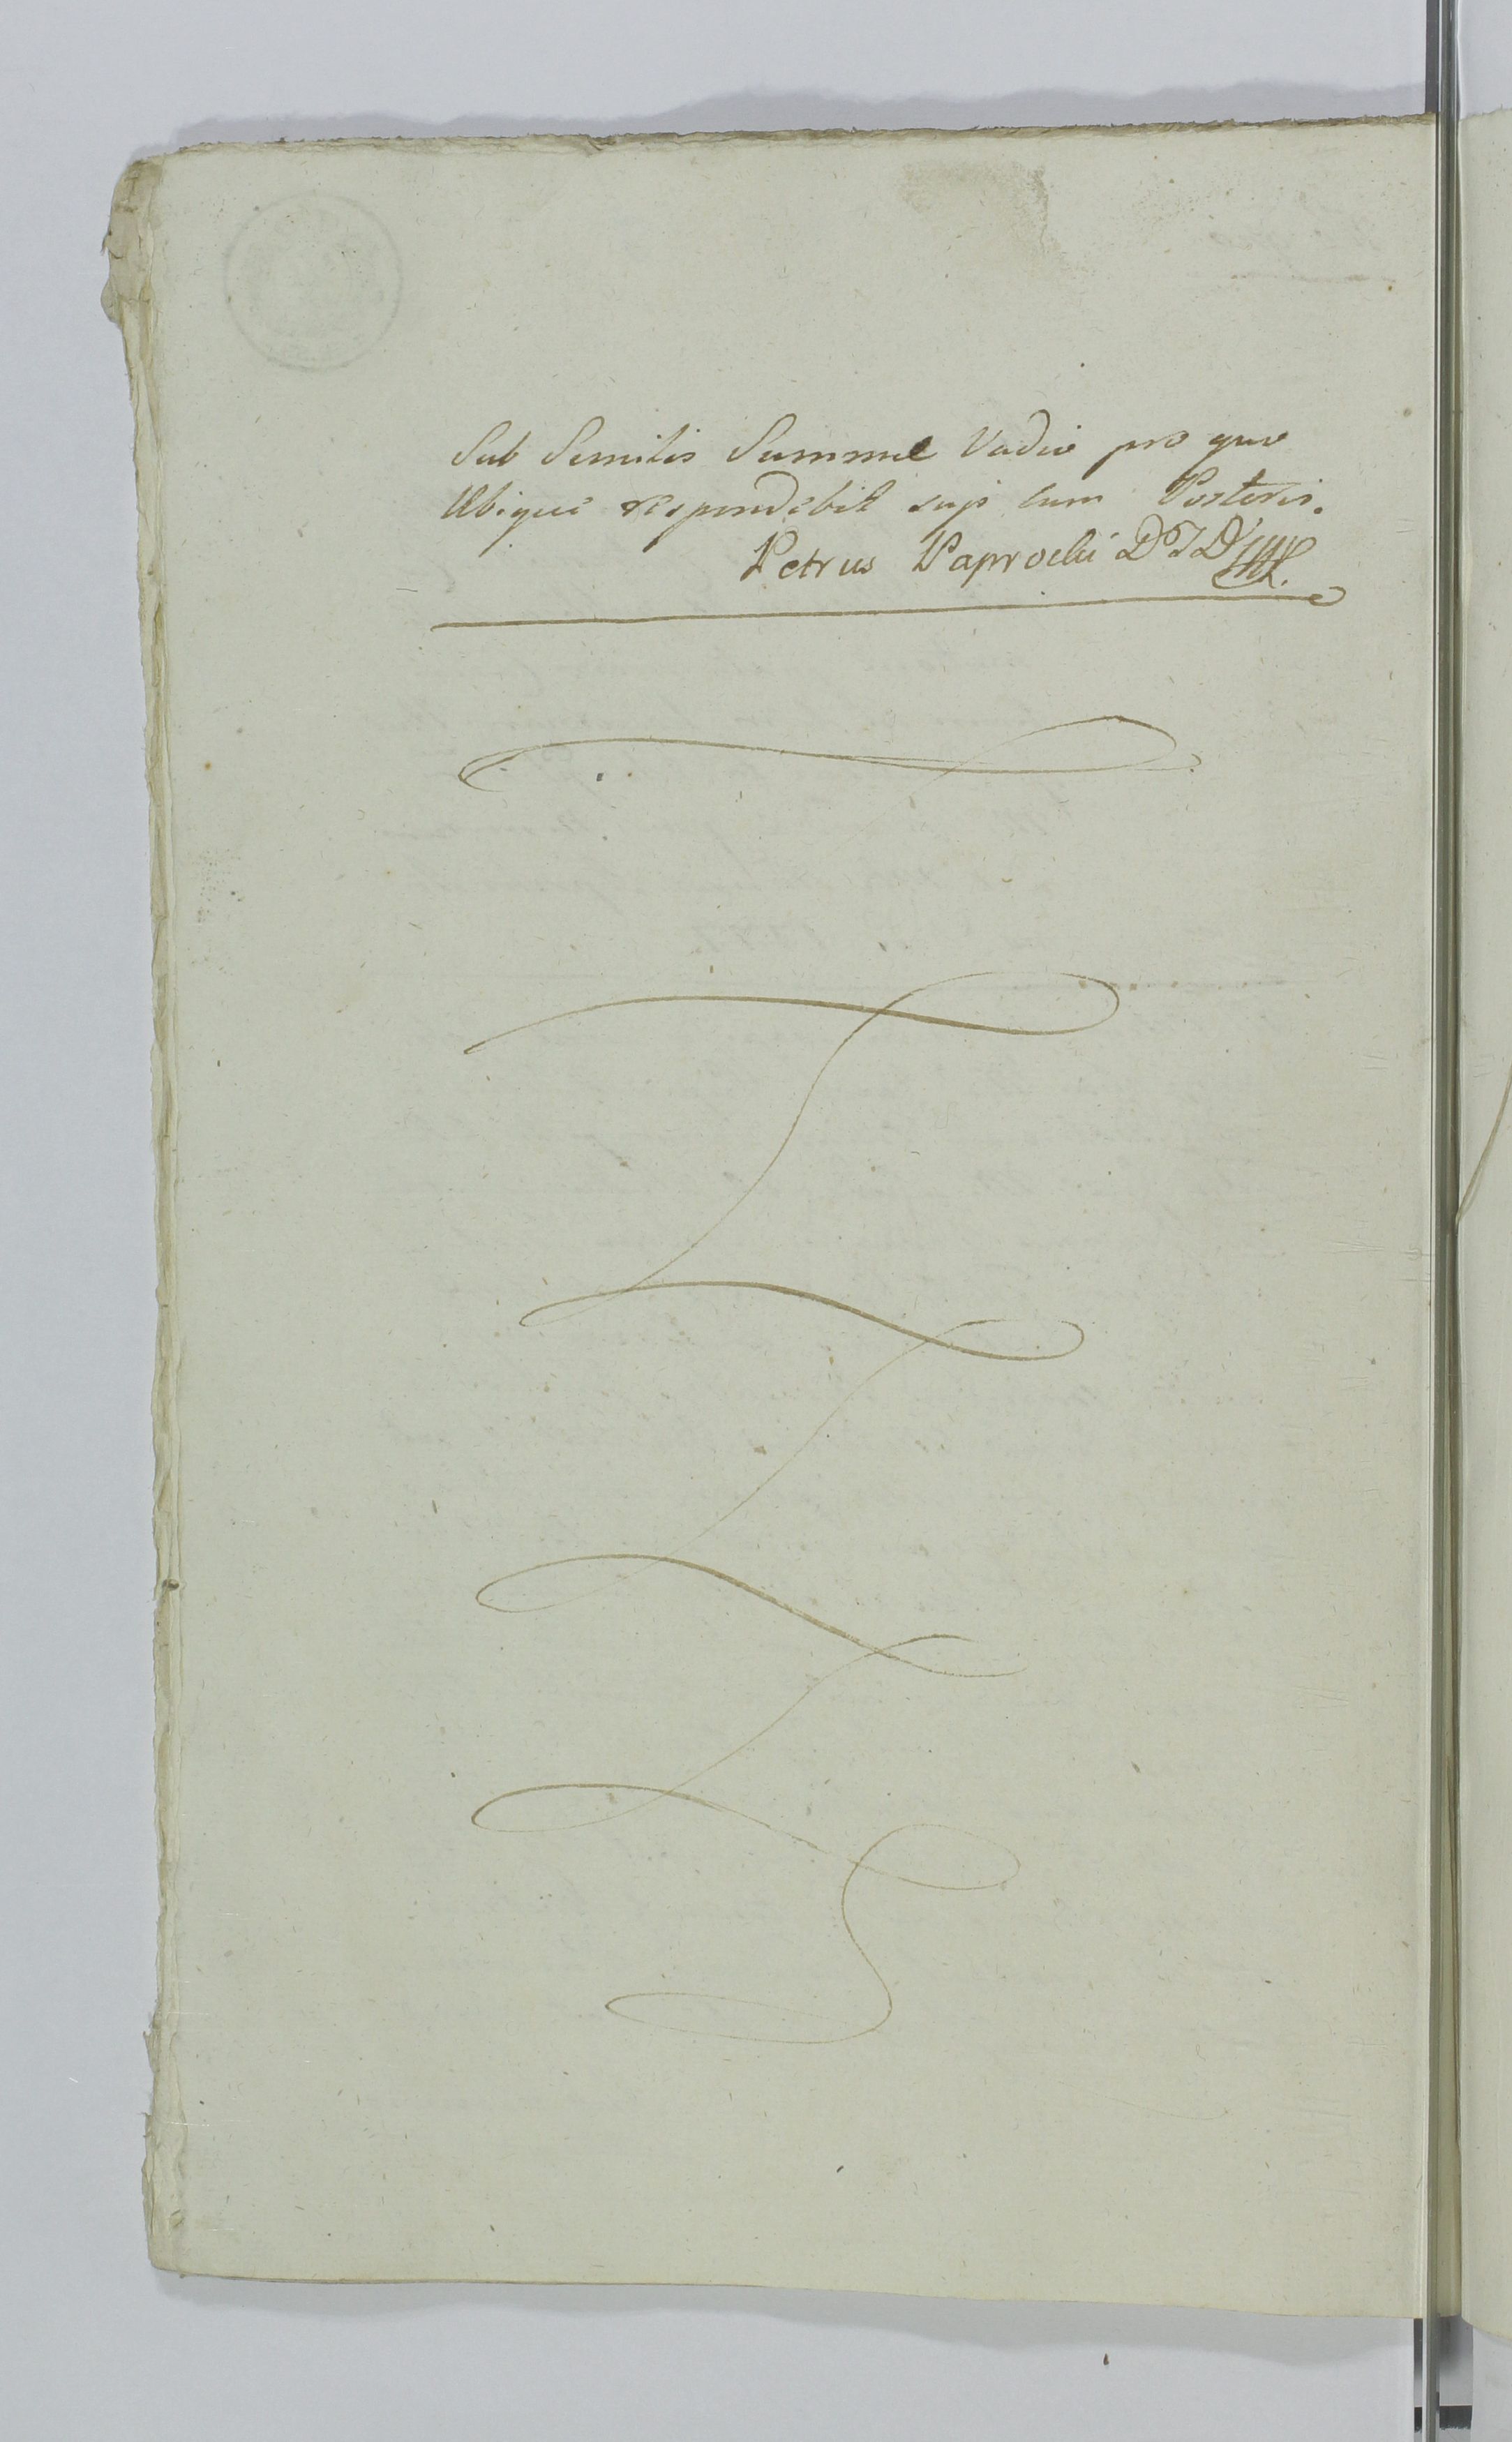 Sub Similis Summæ Vadio pro quo
Ubique respondebit sup cum Posteris.
Petrus Paprocki D J D